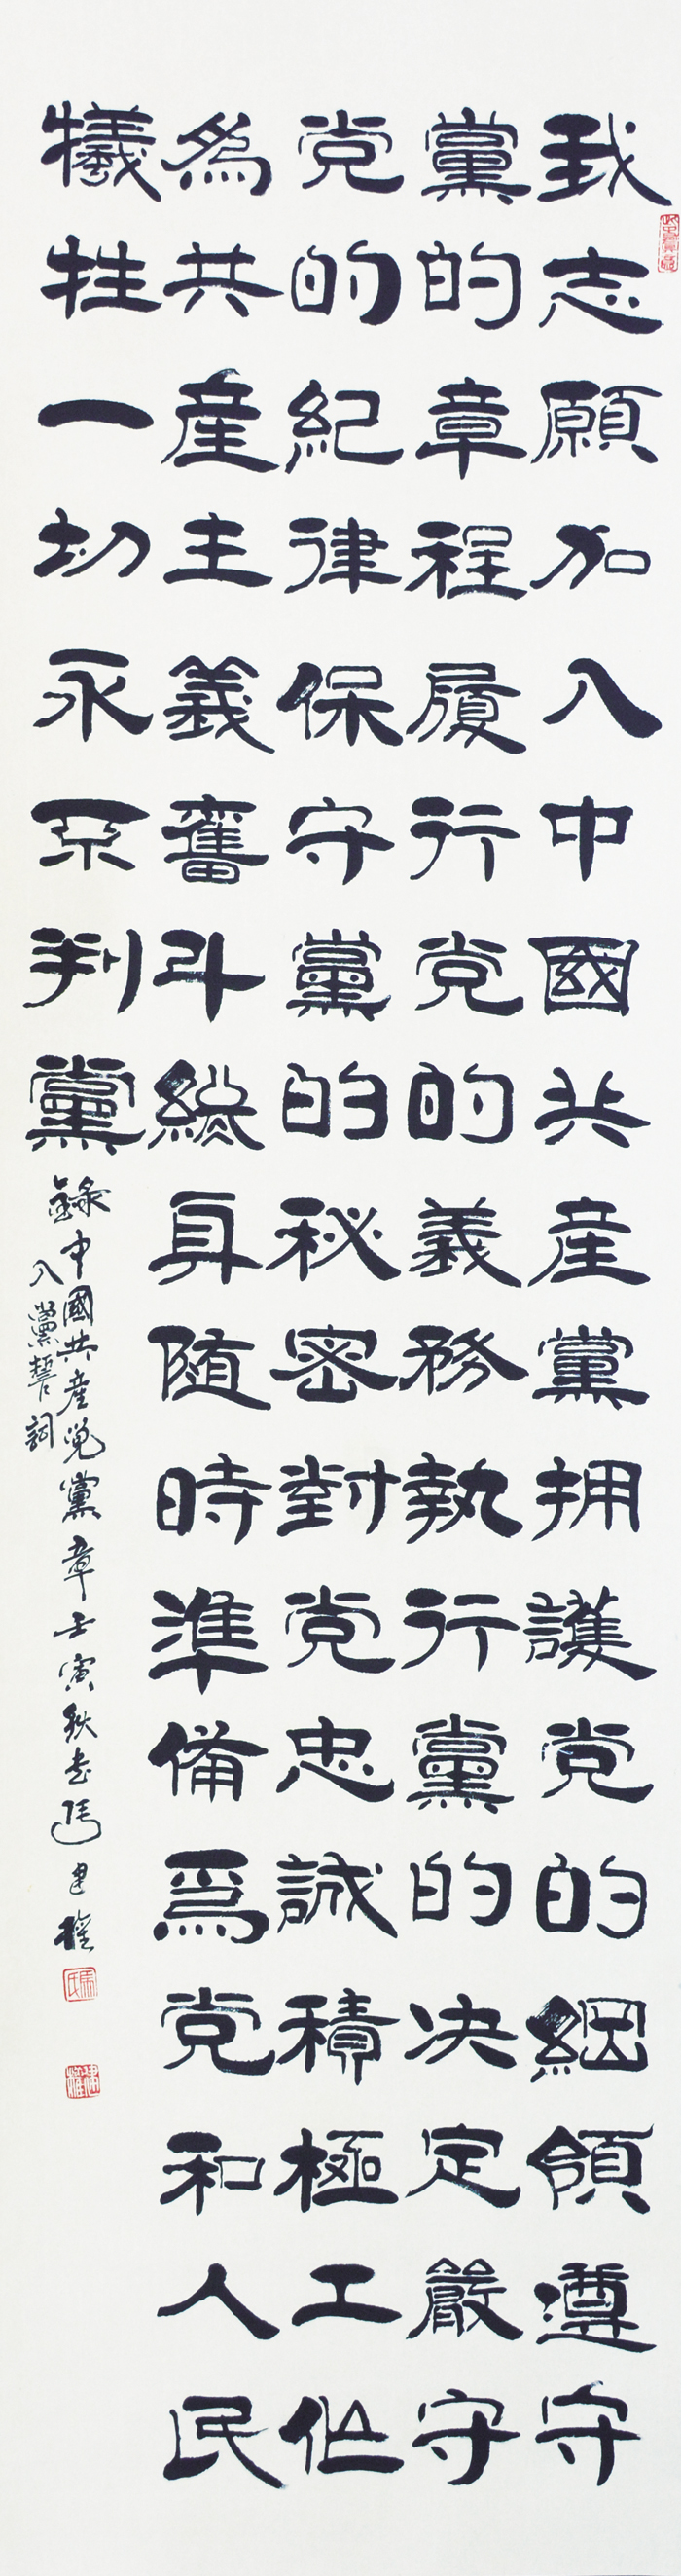 我志願加入中國共産黨拥護党的綱領遵守
黨的章程履行党的義務執行黨的决定嚴守
党的紀律保守黨的秘密對党忠誠積極工作
為共産主義奮斗終身随時準備爲党和人民
犧牲一切永不判黨
錄中國共産党黨章壬寅秋书建權
入黨誓詞